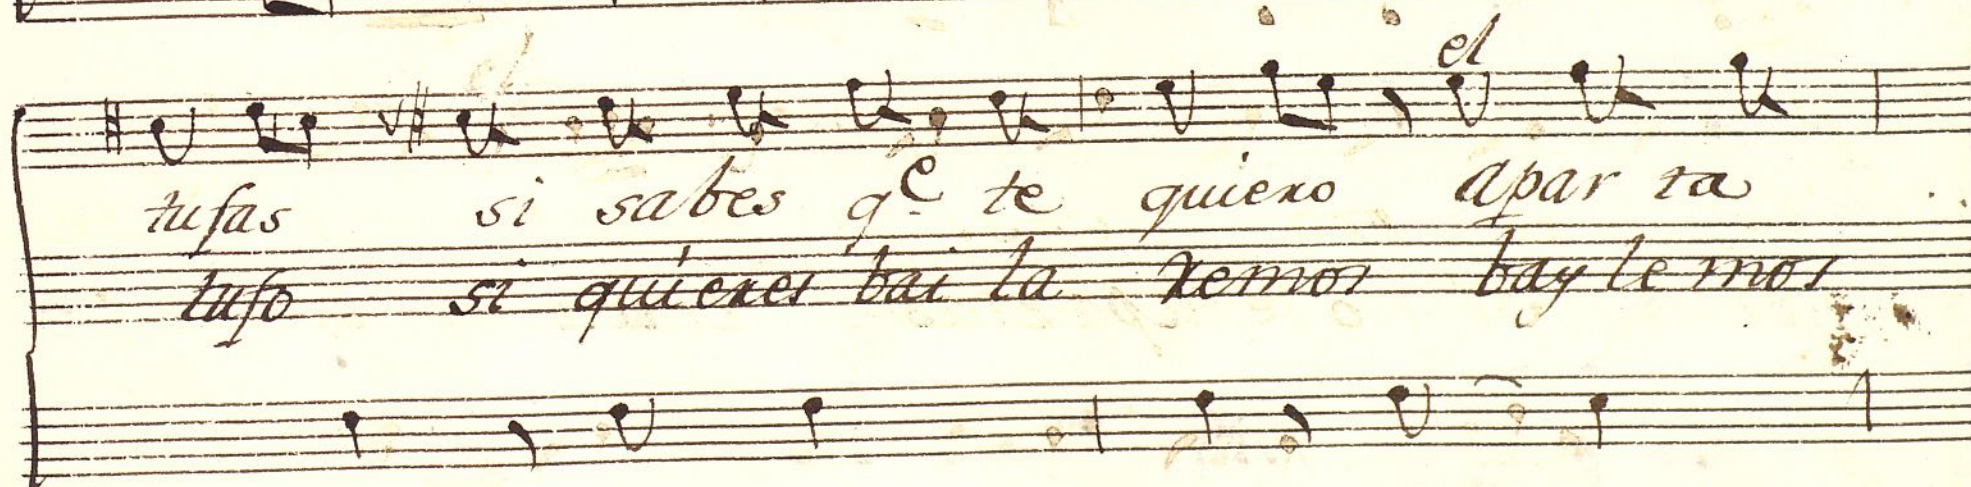 el
tufas si sabes qe te quiero apar ta
tufo si quieres bai la remos bay le mos